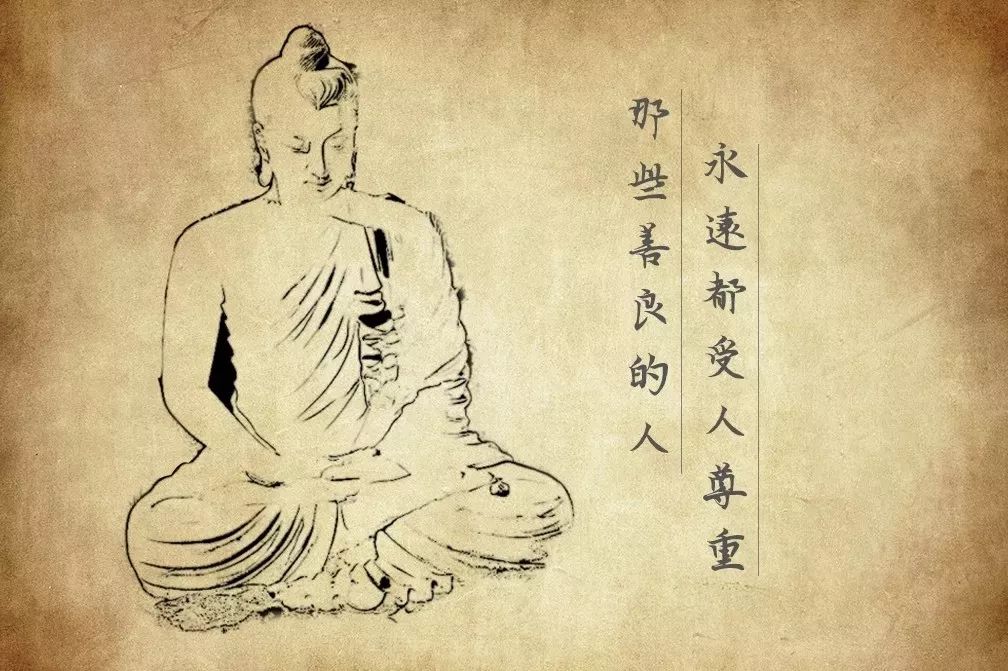 那些善良的人
永遠都受人尊重